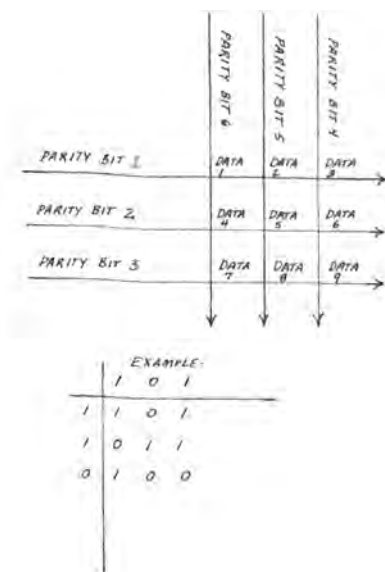 PARITY BIT 6
PARITY BIT 5
PARITY BIT 4
PARITY BIT 1
DATA 1
DATA 2
DATA 3
PARITY BIT 2
DATA 4
DATA 5
DATA 6
PARITY BIT 3
DATA 7
DATA 8
DATA 9
EXAMPLE:
1 0 1
1 1 0 1
1 0 1 1
0 1 0 0